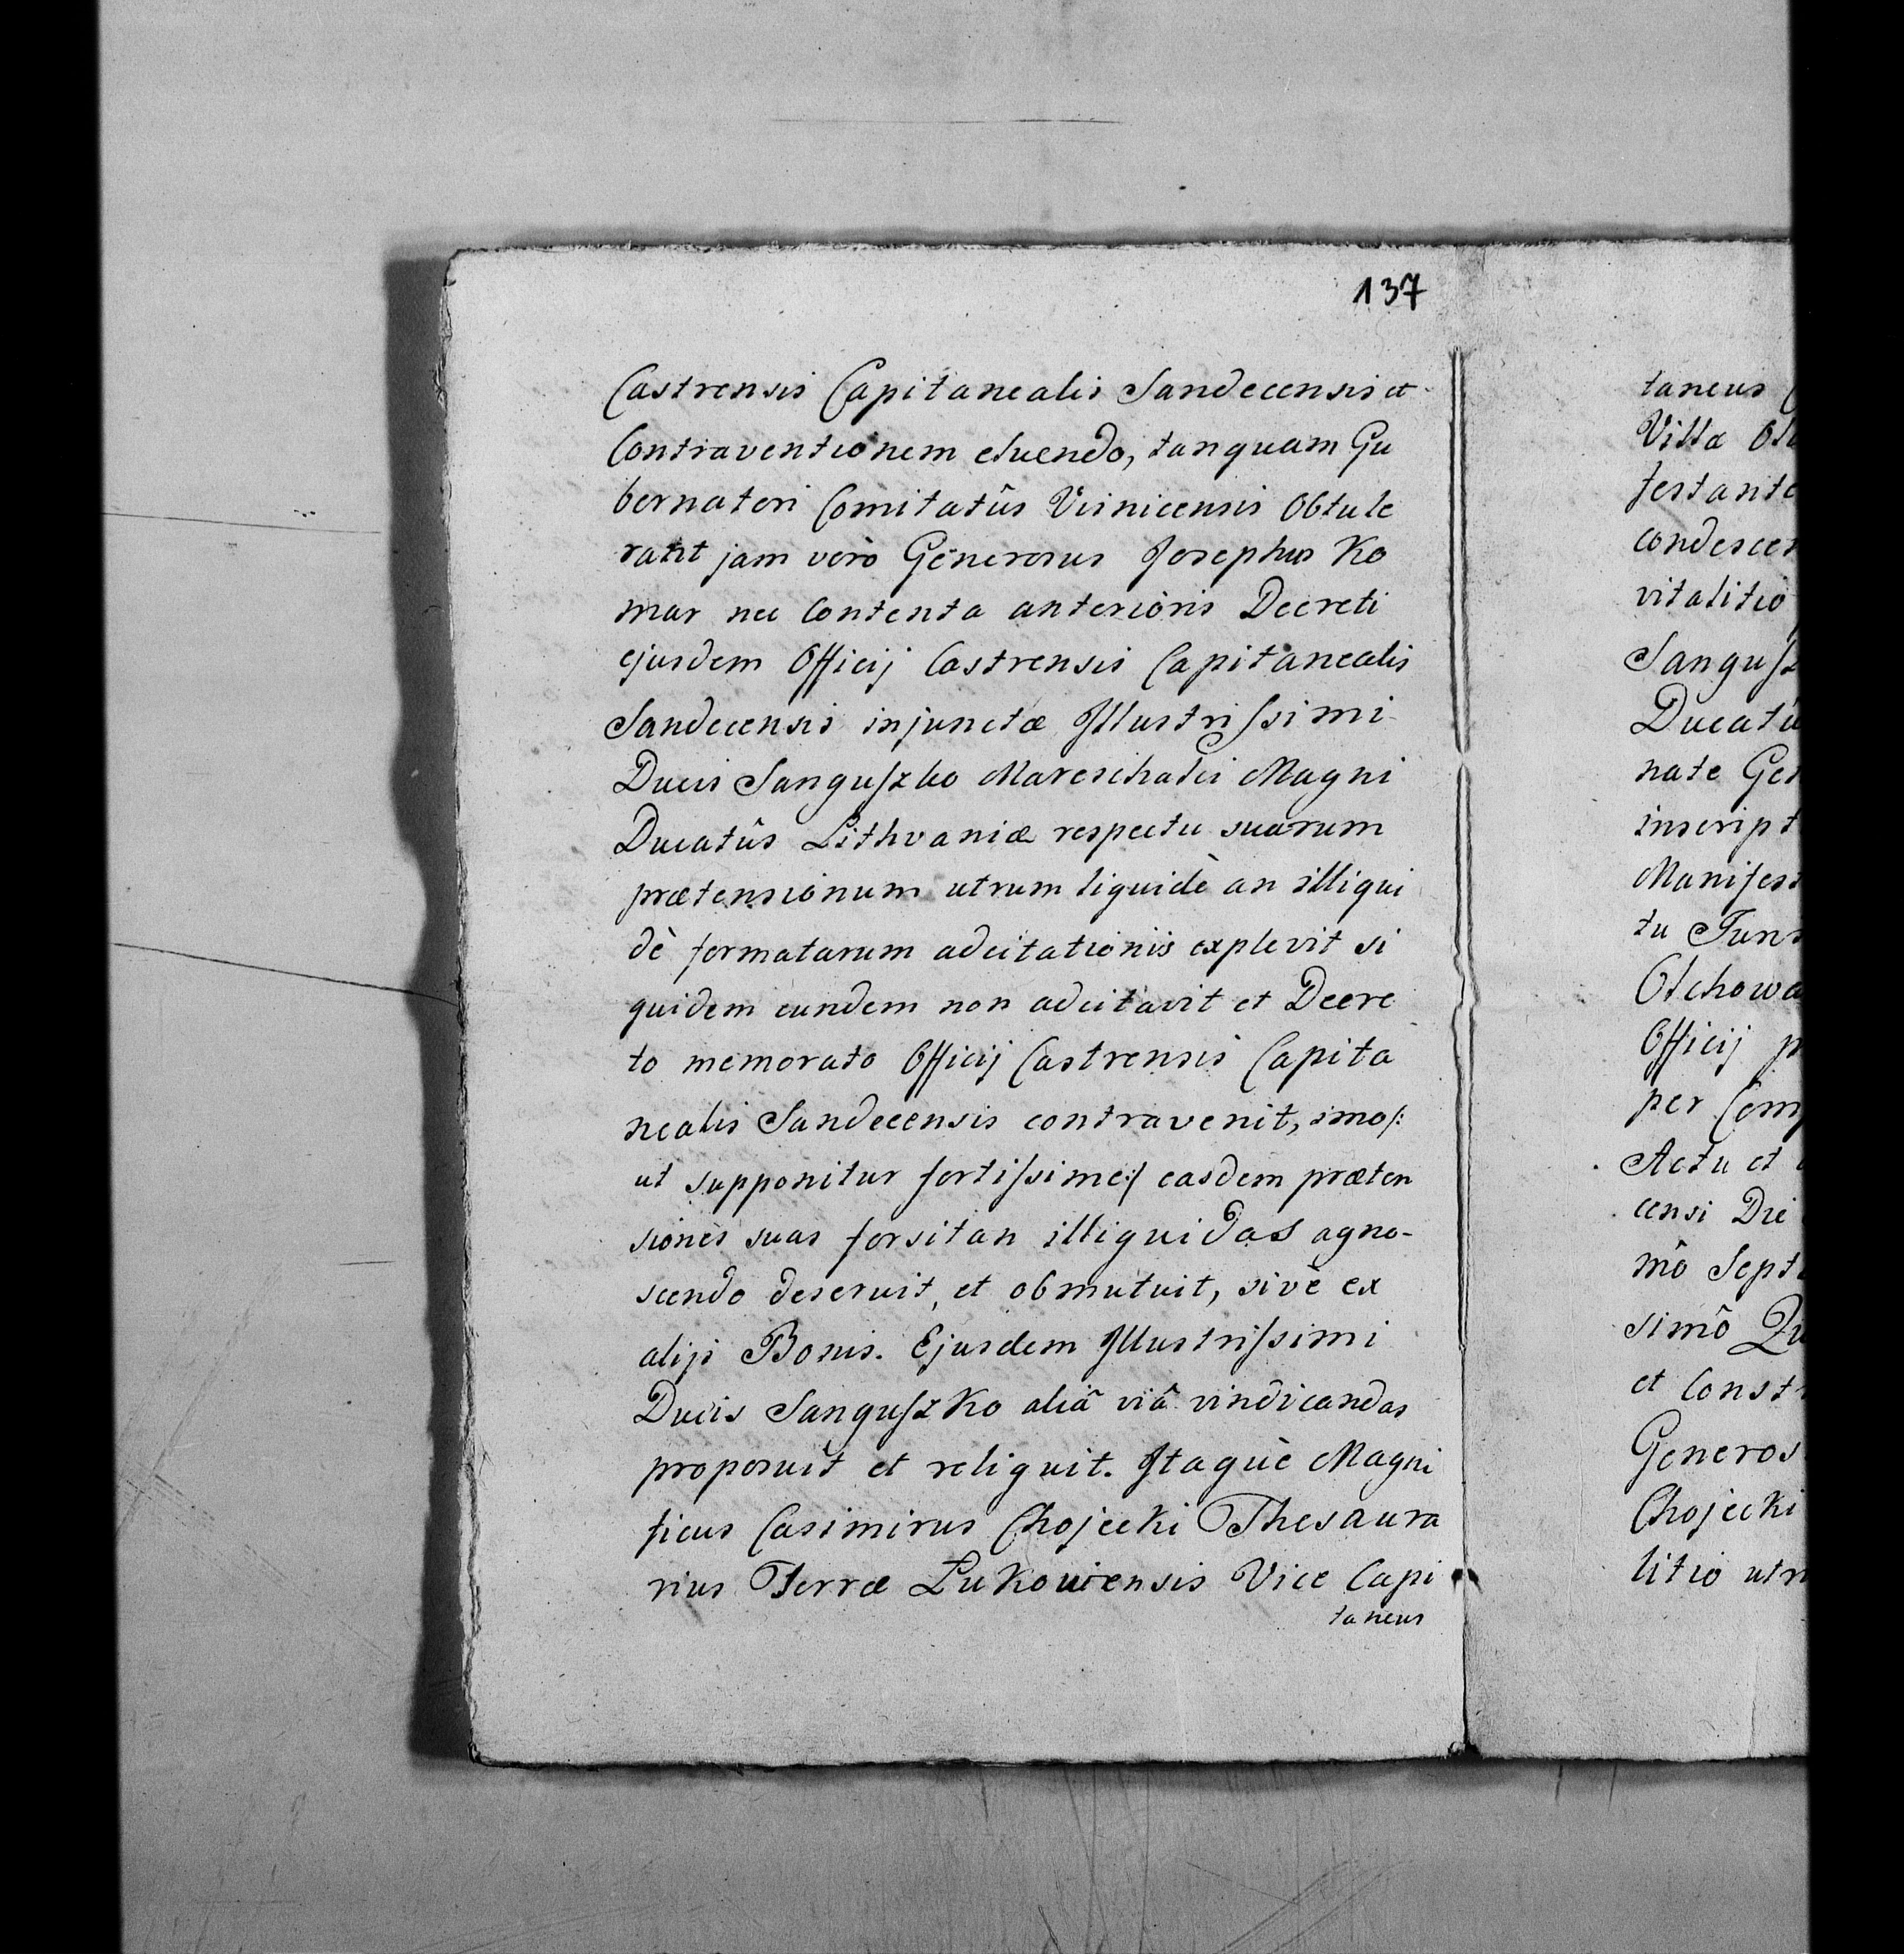 137
Castrensis Capitanealis Sandecensis et
Contraventionem eluendo, tanquam Gu
bernatori Comitatûs Visnicensis Obtule
rant jam verò Generosus Josephus Ko
mar nec Contenta anterioris Decreti
ejusdem Officij Castrensis Capitanealis
Sandecensis injunctæ Illustrissimi
Ducis Sanguszko Mareschalci Magni
Ducatûs Lithvaniæ respectu suarum
prætensionum utrum liquidè an illiqui
dè formatarum adcitationis explevit si
quidem eundem non adcitavit et Decre
to memorato Officij Castrensis Capita
nealis Sandecensis contravenit, imo/:
ut supponitur fortissime:/ easdem præten
siones suas forsitan illiquidas agno-
scendo deseruit, et obmutuit, sivè ex
alijs Bonis. Ejusdem Illustrissimi
Ducis Sanguszko aliâ viâ vindicandas
proposuit et reliquit. Itaquè Magni
ficus Casimirus Chojecki Thesaura
rius Terræ Lukowiensis Vice Capi
taneus
taneus
Villæ
festante
condescen
vitalitio
Sangusz
Ducatû
nate Gen
inscript
Manifest
tu Tuns
Olchowa
Officij p
per Com
Actu et
censi Die
mô Septi
simô Qu
et Constr
Generos
Chojecki
litio utr